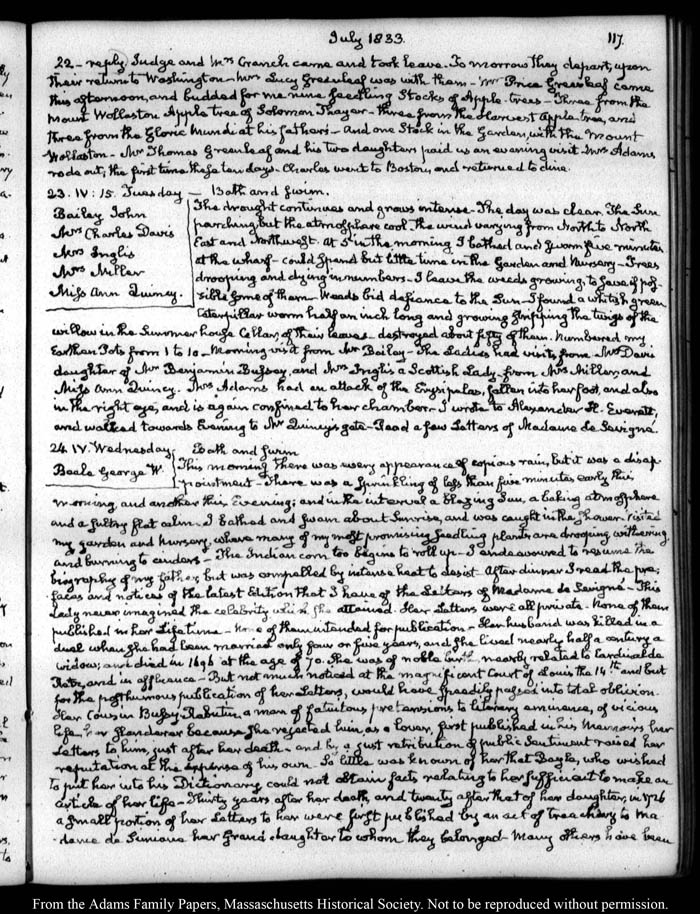 July 1833.
117.
22 - reply Judge and Mrs Cranch came and took leave - To morrow they depart, upon
their return to Washington - Mrs Lucy Greenleaf was with them - Mr Price Greenleaf came
this afternoon, and budded for me nine seedling Stocks of Apple-trees - Three from the
Mount Wollaston Apple tree of Solomon Thayer - three from the Harvest Apple-tree, and
three from the Gloric Mundi at his fathers - And one Stock in the Garden, with the Mount
Wollaston - Mr Thomas Greenleaf and his two daughters paid us an evening visit - Mrs Adams
rode out; the first time these ten days - Charles went to Boston, and returned to dine.
23. IV: 15. Tuesday - Bath and swim.
Bailey John
Mrs Charles Davis
Mrs Inglis
Mrs Miller
Miss Ann Quincy.
The drought continues and grows intense - The day was clear, The Sun
parching, but the atmosphere cool. The wind varying from North to North
East and Northwest. At 5 in the morning I bathed and swam five minutes
at the wharf - could spend but little time in the Garden and Nursery - Trees
drooping and dying in numbers - I leave the weeds growing, to save if pos-
sible some of them - Weeds bid defiance to the Sun - I found a whitish green
Caterpillar worm half an inch long and growing stripping the twigs of the
willow in the Summer house Cellar, of their leaves - destroyed about fifty of them. Numbered my
Earthen Pots from 1 to 10 - Morning visit from Mr Bailey - The Ladies had visits, from Mrs Davis
daughter of Mr Benjamin Bussey, and Mrs Inglis a Scottish Lady - from Mrs Miller, and
Miss Ann Quincy. Mrs Adams had an attack of the Erysipelas, fallen into her foot, and also
in the right eye, and is again confined to her chamber - I wrote to Alexander H. Everett,
and walked towards Evening to Mr Quincy's gate - Read a few Letters of Madame de Sevigné.
24. IV. Wednesday. Bath and swim
Beale George W.
This morning there was every appearance of copious rain, but it was a disap-
pointment - There was a sprinkling of less than five minutes early this
morning, and another this Evening; and in the interval a blazing Sun, a baking atmosphere
and a sultry flat calm. I bathed and swam about Sunrise, and was caught in the shower. Visited
my garden and Nursery, where many of my most promising seedling plants are drooping, withering
and burning to cinders - The Indian corn too begins to roll up - I endeavoured to resume the
biography of my father, but was compelled by intense heat to desist - After dinner I read the pre-
faces and notices of the latest Edition that I have of the Letters of Madame de Sevigné - This
Lady never imagined the celebrity which she attained. Her Letters were all private - None of them
published in her Life time - None of them intended for publication - Her husband was killed in a
duel when she had been married only four or five years, and she lived nearly half a century a
widow; and died in 1696 at the age of 70. She was of noble birth, nearly related to Cardinal de
Retz, and in affluence - But not much noticed at the magnificent Court of Louis the 14th. and but
for the posthumous publication of her Letters, would have speedily passed into total oblivion.
Her Cousin Bussy-Rabutin a man of fatuitous pretensions to literary eminence, of vicious
life, her slanderer because she rejected him as a lover, first published in his Memoirs her
Letters to him, just after her death - and by a just retribution of public Sentiment raised her
reputation at the expense of his own. So little was known of her that Bayle, who wished
to put her into his Dictionary could not obtain facts relating to her sufficient to make an
article of her life - Thirty years after her death, and twenty after that of her daughter, in 1726
a small portion of her Letters to her were first published by an act of treachery to Ma-
dame de Simiane her Grand daughter to whom they belonged - Many others have been
From the Adams Family Papers, Massachusetts Historical Society. Not to be reproduced without permission.